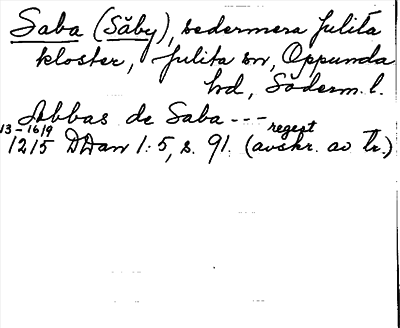 Saba (Säby), sedermera Julita
kloster, Julita sn, Oppunda
hd, Söderm. l.
Abbas de Saba ---
13-16/9 regest
1215 DDan 1:5, s. 91. (avskr. av tr.)